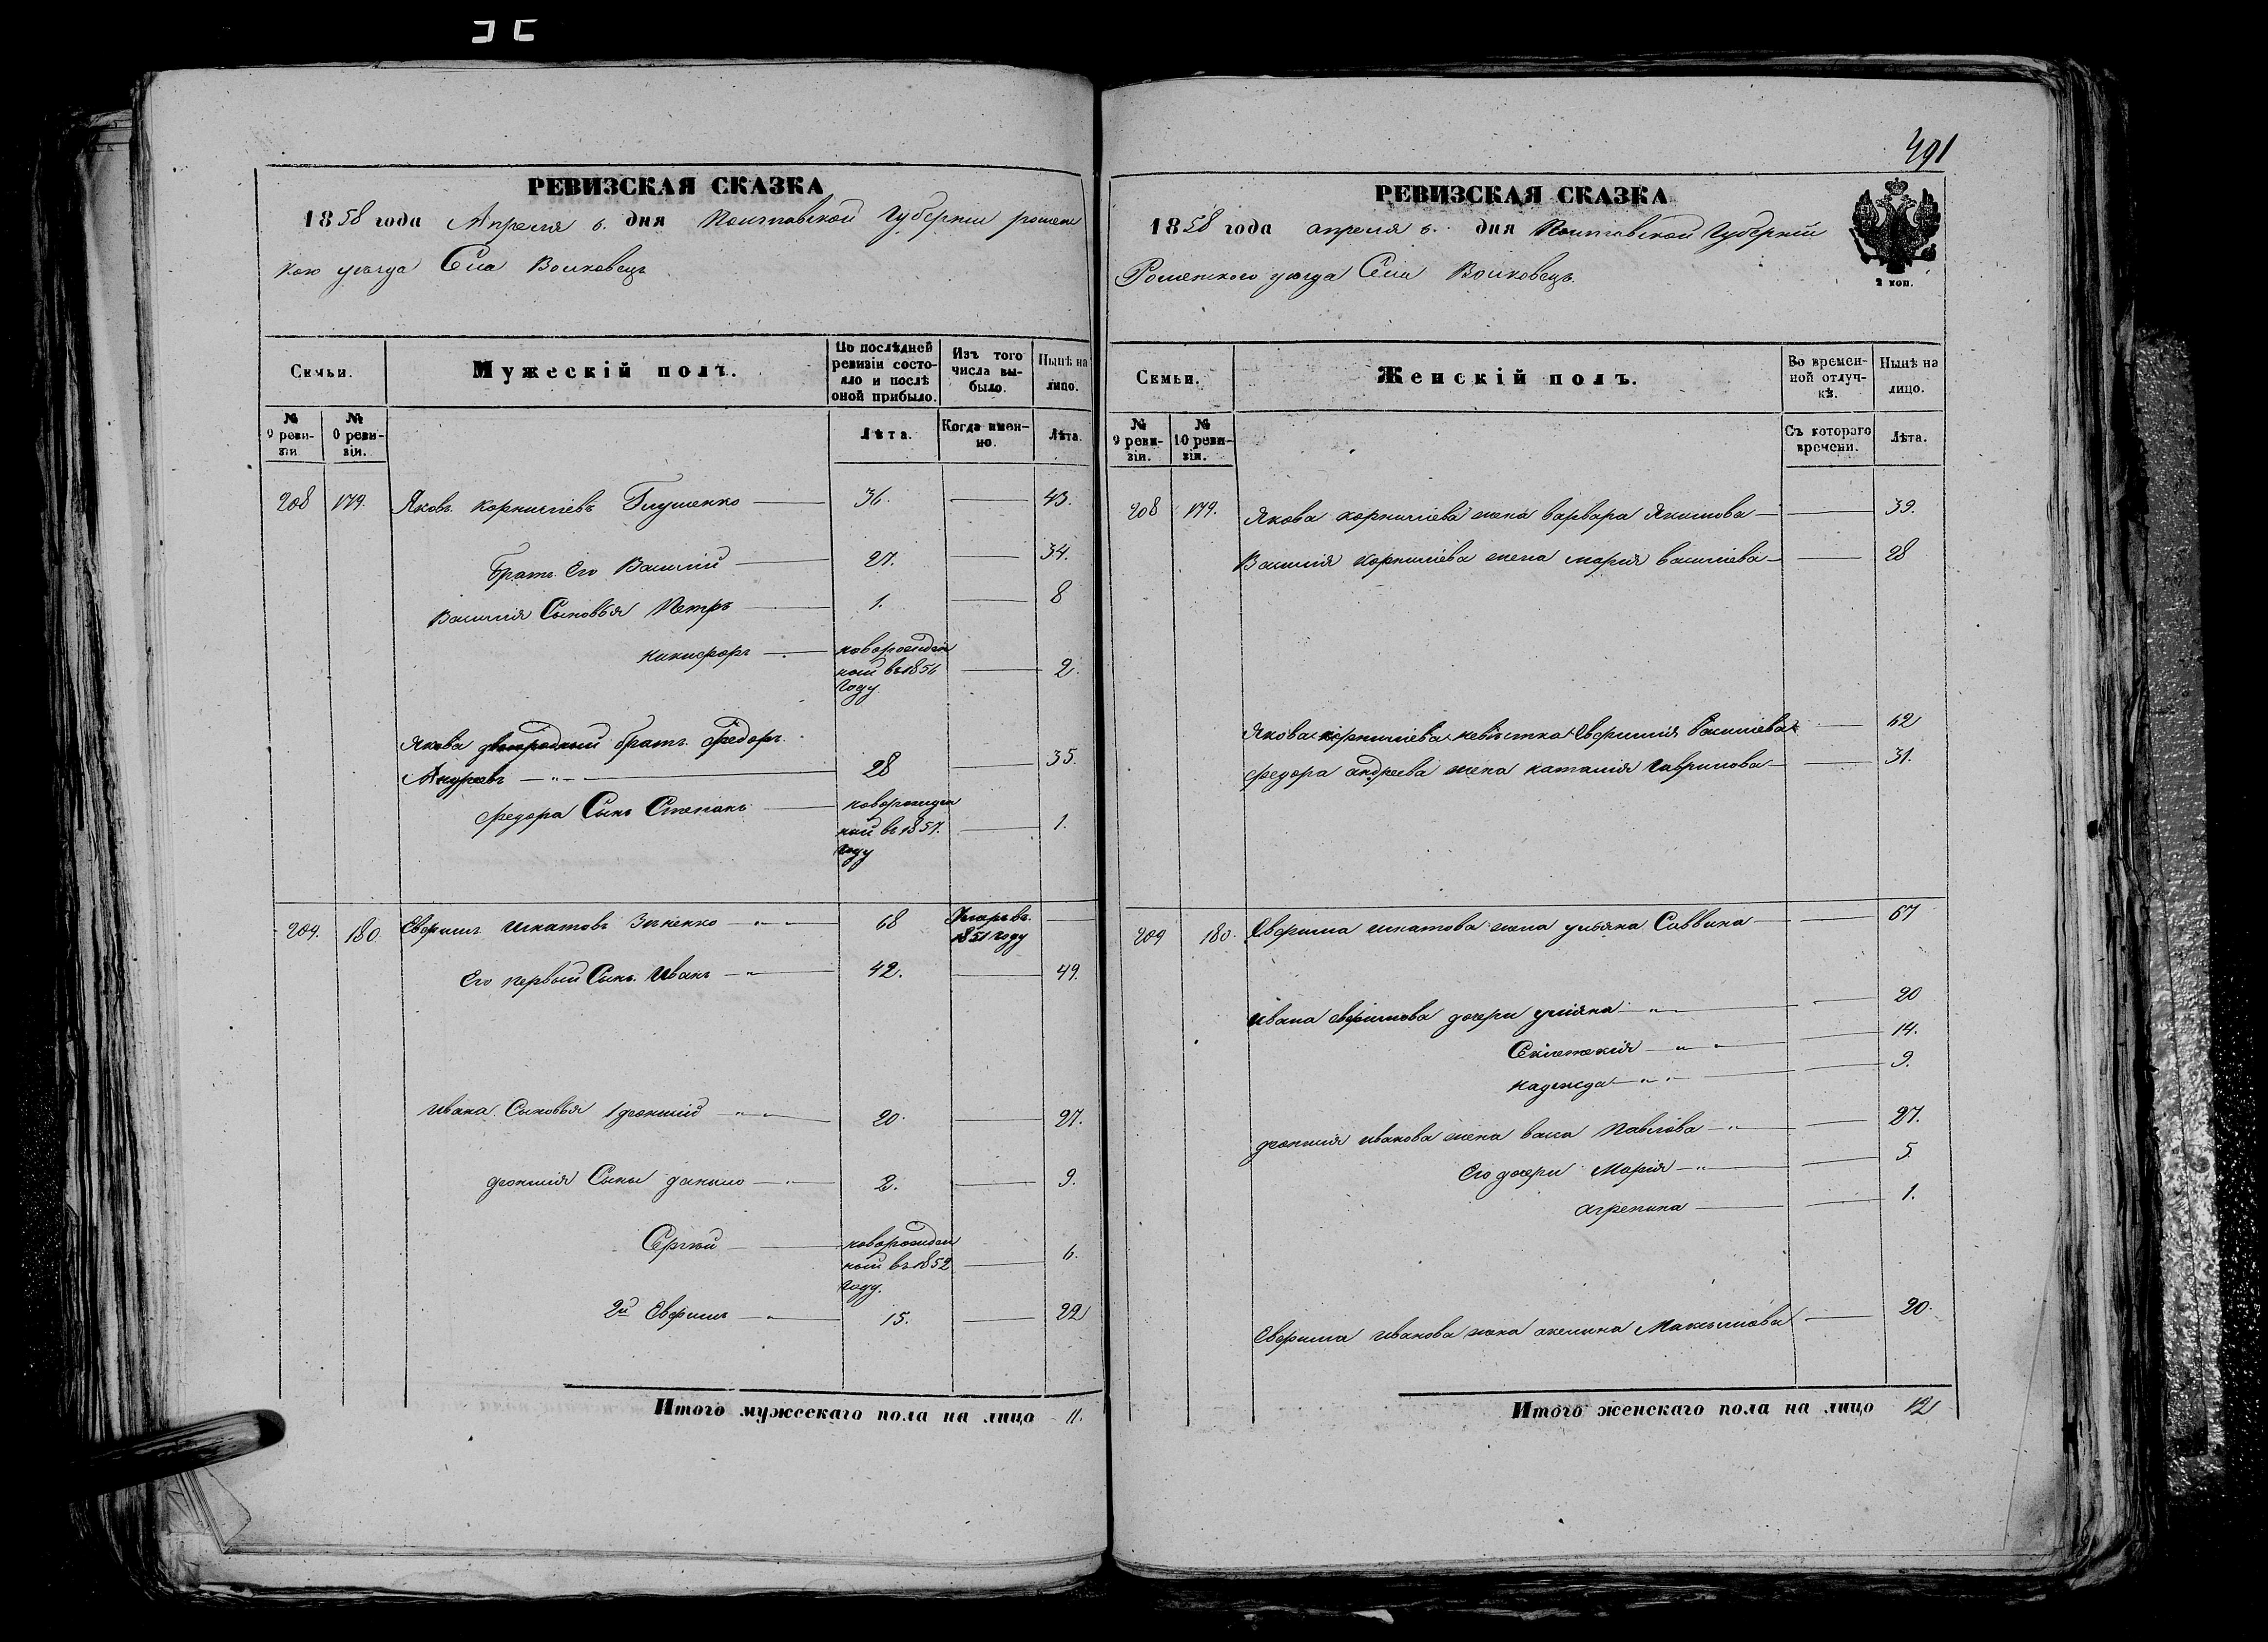 РЕВИЗСКАЯ СКАЗКА
1858 года Апреля 6. дня Полтавской Губернии ромен
кого уезда Села Волковец
Семьи.
Мужескій полъ.
По послѣдней ревизіи состояло и послѣ оной прибыло.
Изъ того числа выбыло.
Нынѣ на лицо.
№ 9 ревизіи
№ 10 ревизіи.
Лѣта.
Когда именно.
Лѣта.
208 179. Яковъ корниліевъ Глушенко 36. 43.
братъ его Василий 27. 34.
Василия Сыновья Петръ 1. 8
никифоръ новорожден
ный въ 1856 2.
году
Якова двоюродный братъ Федоръ
Андреевъ 28 35.
федора Сынъ Степанъ новорожден
ный въ 1857. 1.
году
209. 180. Евфимъ игнатовъ 68 Умеръ въ
1851 году
Его первый Сынъ Иванъ 42. 49.
ивана Сыновья 1 леонтий 20. 27.
Сыны данило 2. 9.
Сергѣй новорожден
ный въ 1852 6.
году.
2й Евфимъ 15. 22
Итого мужескаго пола на лицо 11.
491
РЕВИЗСКАЯ СКАЗКА
1858 года апреля 6. дня Полтавской Губерніи
Роменского уезда Села Волковецъ.
2 коп.
Семьи.
Женскій полъ.
Во временной отлучкѣ.
Нынѣ на лицо.
№ 9 ревизіи.
№ 10 ревизіи.
Съ котораго времени.
Лѣта.
208 179. Якова корниліева жена варвара Якимова 39.
Василия корниліева жена мария василиева 28
Якова корниліева невѣстка Евфимия Василиева 62
федора андреева жена наталия Гаврилова 31.
209 180. Евфима игнатова жена ульяна Саввина 67
Ивана евфимова дочери улияна 20
14.
надежда 9.
иванова жена васа Павлова 27.
Его дочери Мария 5.
агрепина 1.
Евфима иванова жена акилина Максимова 20.
Итого женскаго пола на лицо 12